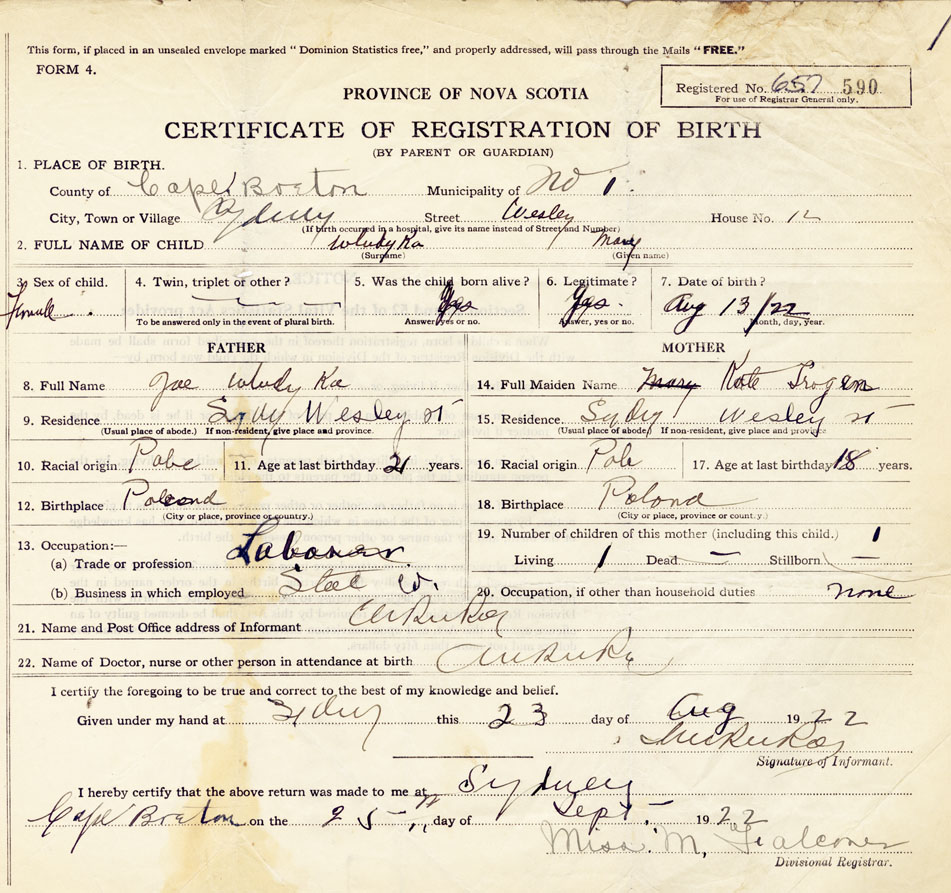 This form, if placed in an unsealed envelope marked "Dominion Statistics free," and properly addressed, will pass through the Mails "FREE."
FORM 4.
Registered No. 657 590
For use of Registrar General only.
PROVINCE OF NOVA SCOTIA
CERTIFICATE OF REGISTRATION OF BIRTH
(BY PARENT OR GUARDIAN)
1. PLACE OF BIRTH.
County of Cape Breton Municipality of No 1.
City, Town or Village Sydney Street Wesley House No. 12
(If birth occurred in a hospital, give its name instead of Street and Number)
2. FULL NAME OF CHILD WludyKa Mary
(Surname) (Given name)
3. Sex of child. 4. Twin, triplet or other? 5. Was the child born alive? 6. Legitimate? 7. Date of birth?
Female Yes Yes Aug 13/22
To be answered only in the event of plural birth. Answer yes or no. Answer, yes or no. Month, day, year.
FATHER MOTHER
8. Full Name Joe WludyKa 14. Full Maiden Name Mary Kate
9. Residence Sydy Wesley st 15. Residence Sydy Wesley st
(Usual place of abode.) If non-resident, give place and province. (Usual place of abode.) If non-resident, give place and province
10. Racial origin Pole 11. Age at last birthday 21 years. 16. Racial origin Pole 17. Age at last birthday 18 years.
12. Birthplace Poland 18. Birthplace Poland
(City or place, province or country.) (City or place, province or country.)
13. Occupation:— 19. Number of children of this mother (including this child.) 1
(a) Trade or profession Laborer Living 1 Dead — Stillborn —
(b) Business in which employed Steel W. 20. Occupation, if other than household duties none
21. Name and Post Office address of Informant
22. Name of Doctor, nurse or other person in attendance at birth
I certify the foregoing to be true and correct to the best of my knowledge and belief.
Given under my hand at Sydney this 23 day of Aug 1922
Signature of Informant.
I hereby certify that the above return was made to me at Sydney
Cape Breton on the 25 day of Sept. 1922
Miss. M. Falconer
Divisional Registrar.